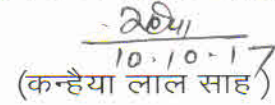 10.10.17
(कन्हैया लाल साह)